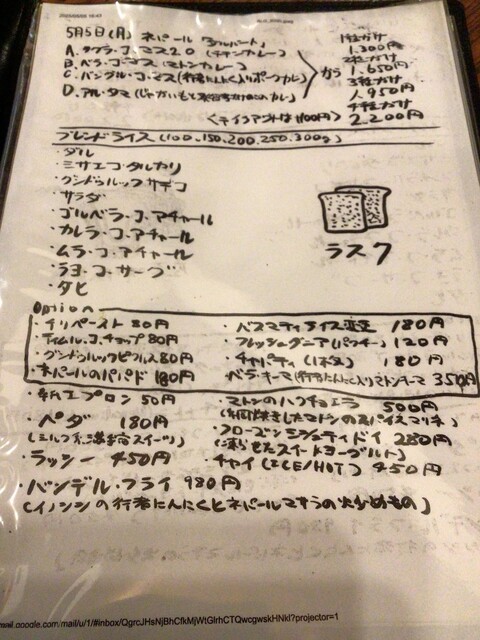 5月5日(月) ネパール
A. タクラ・コ・マス20 (チキンカレー)
B. ベラ・コ・マス(マトンカレー)
C. バングル・コ・マス(行者にんにく入りポークカレー)
D. アル・タマ(じゃがいもと カレー)
から
1種がけ
1.300円
2種がけ
1.650円
3種がけ
1.950円
4種がけ
2.200円
<テイクアウトは 100円>
ブレンドライス(100.150.200.250.300g)
・ダル
・ミサエコ・タルカリ
・グンドゥルック サデコ
・サラダ
・ゴルベラ・コ・アチャール
・カレラ・コ・アチャール
・ムラ・コ・アチャール
・ラヨ・コ・サーグ
・タヒ
ラスク
Option
・チリペースト 80円
・ティムル・コ・チョップ 80円
・グンドゥルックピクルス 80円
・ネパールのパパド 180円
・バスマティライス変更 180円
・フレッシュダニア(パクチー) 120円
・チャパティ(1枚) 180円
・ベラ・キーマ(行者にんにく入りマトンキーマ) 350円
・紙エプロン 50円
・ペダ 180円
(ミルク系濃密スイーツ)
・ラッシー 450円
・マトンのハクチョエラ 500円
(網焼きしたマトンのスパイスマリネ)
・フローズンミシュティドイ 280円
(凍らせたスイートヨーグルト)
・チャイ(ICE/HOT) 450円
・バンデル・フライ 980円
(イノシシの行者にんにくとネパールマサラの炒めもの)
mail.google.com/mail/u/1/#inbox/QgrcJHsNjBhCfkMjWtGlrhCTQwcgwskHNkl?projector=1